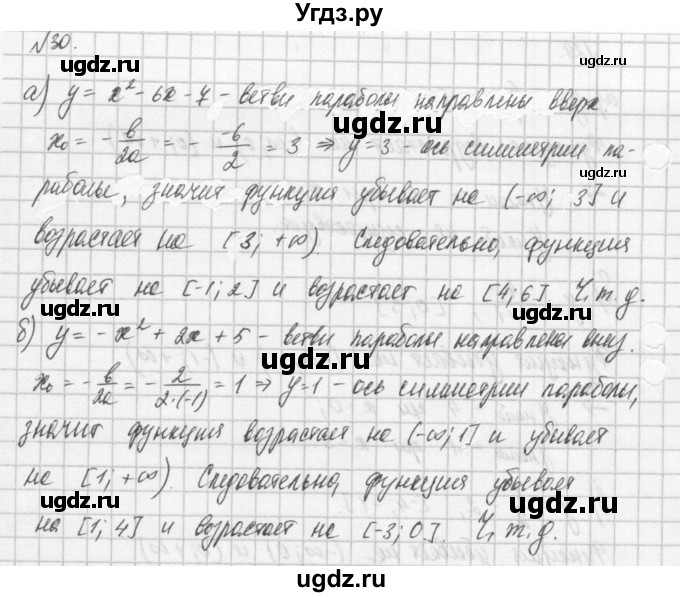 Угдз.ру
№30.
а) y = x² - 6x - 7 - ветви параболы направлены вверх.
x₀ = - в/2a = - -6/2 = 3 ⇒ y=3 - ось симметрии па-
раболы, значит функция убывает на (-∞; 3] и
возрастает на [3; +∞). Следовательно, функция
убывает на [-1; 2] и возрастает на [4; 6]. Ч.т.д.
б) y = - x² + 2x + 5 - ветви параболы направлена вниз.
x₀ = - в/2a = - 2/2·(-1) = 1 ⇒ y=1 - ось симметрии параболы,
значит функция возрастает на (-∞; 1] и убывает
на [1; +∞). Следовательно, функция убывает
на [1; 4] и возрастает на [-3; 0]. Ч.т.д.
ugdz.ru
ugdz.ru
ugdz.ru
ugdz.ru
ugdz.ru
ugdz.ru
ugdz.ru
ugdz.ru
ugdz.ru
ugdz.ru
ugdz.ru